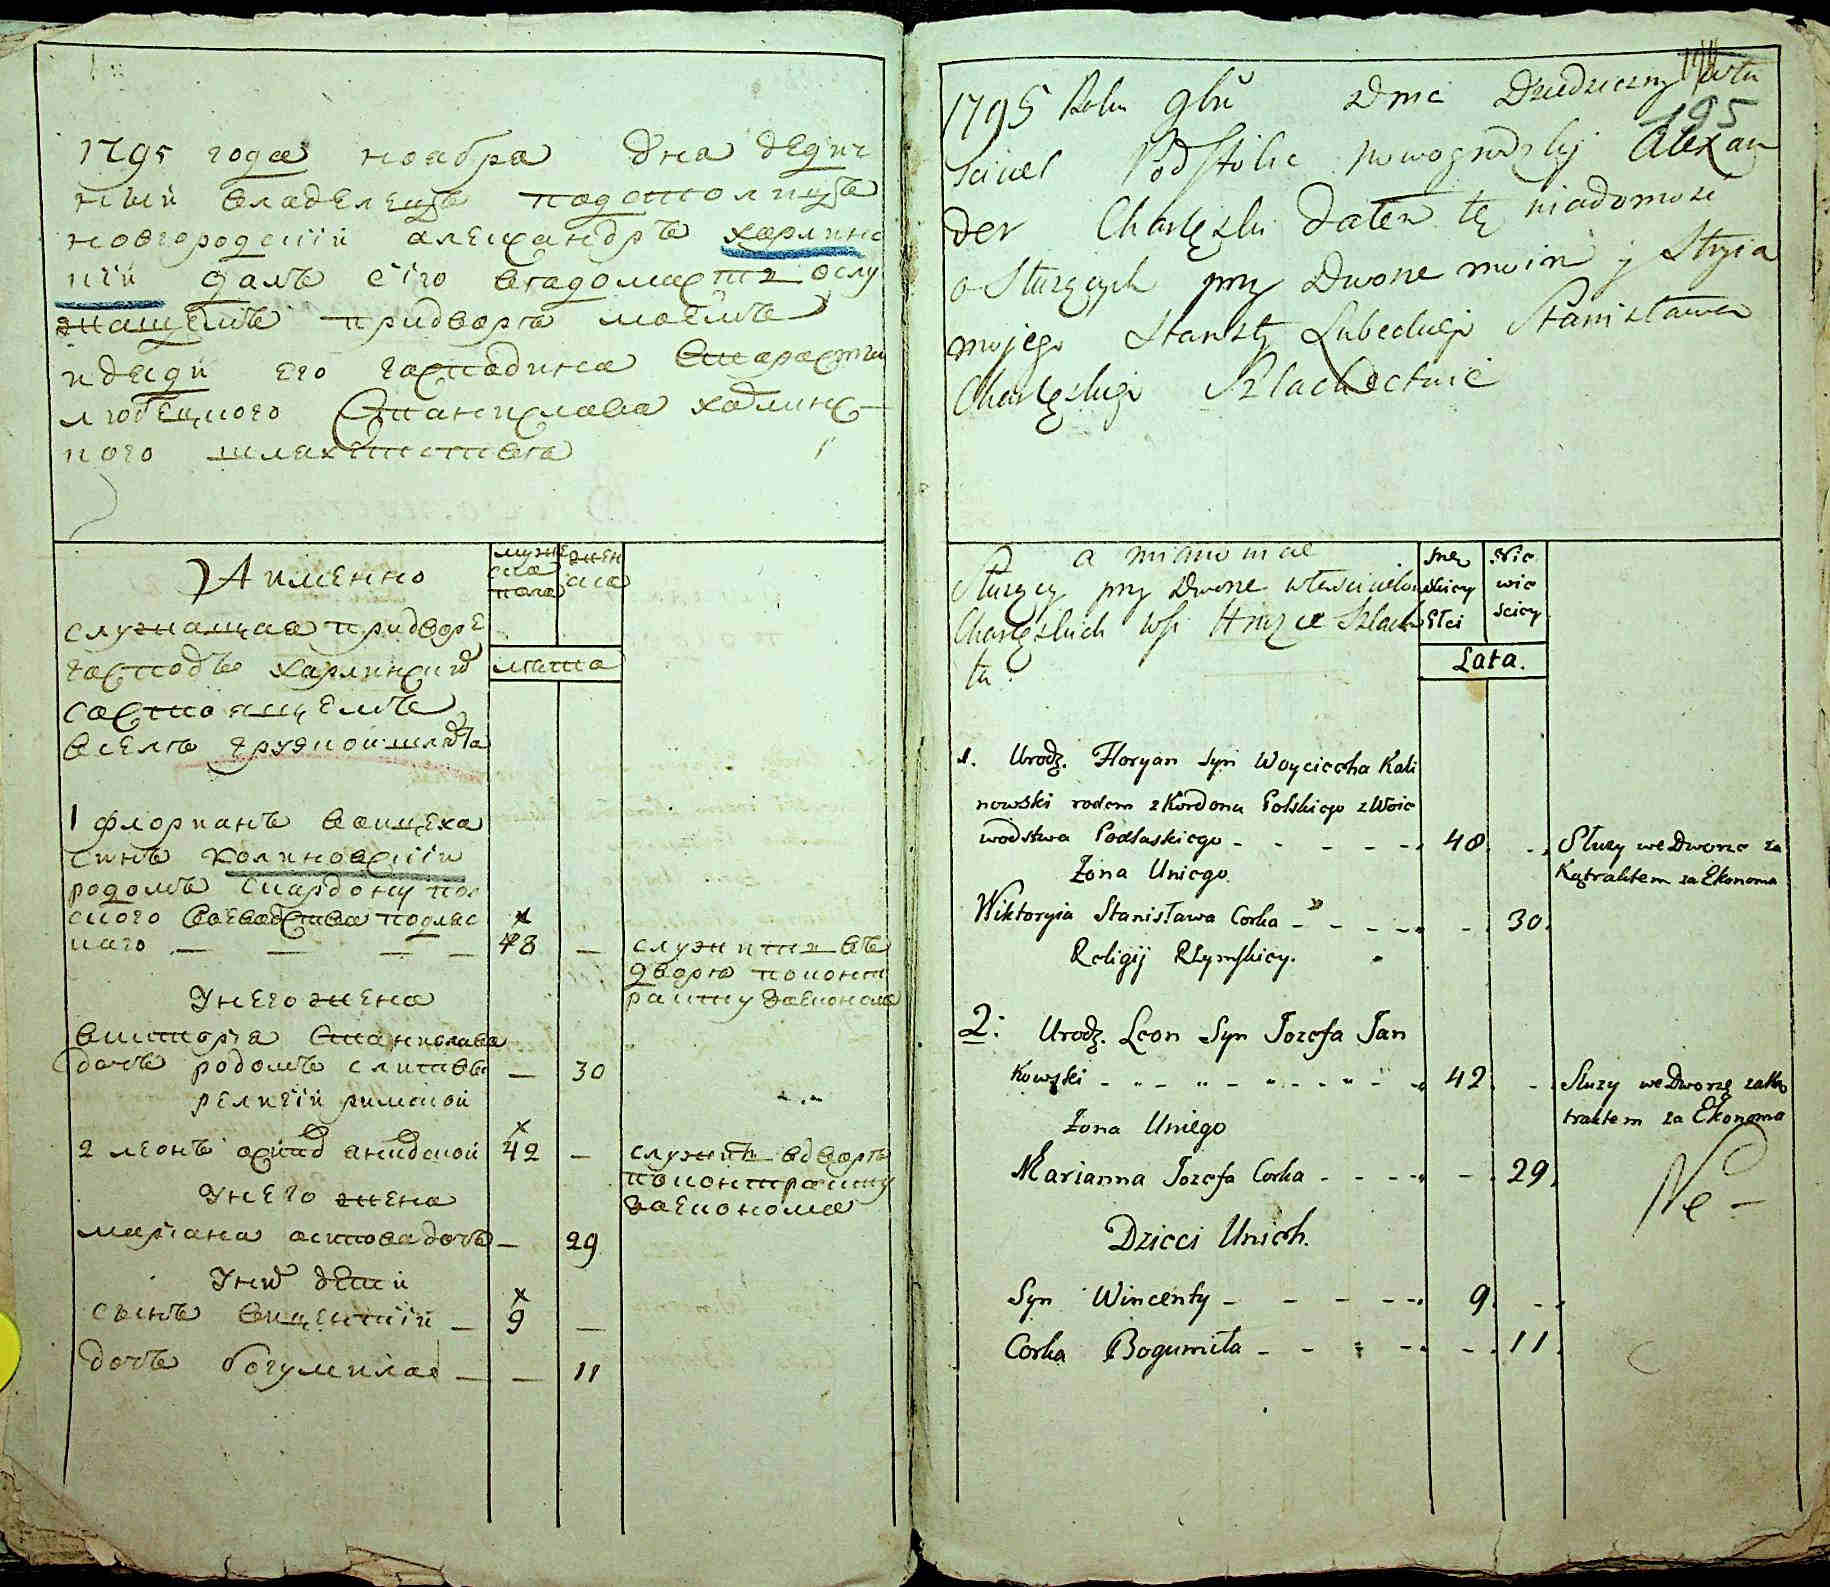 1795 года ноабра дна дедич
ный владелецъ подстолицъ
новгородский александръ харлинс
кий далъ сию ведомасть ослу
жащемъ придворе моемъ
идяди его господина старосты
любецкого Станислава харлинс
кого шляхетства
А именно
служащая придворе
господъ харлинских
состоящемъ
вселе грузкой шляхта
мужеска пола
женска
лета
1 флориянъ воицеха
синъ Колиновский
родомъ скардону пол
ского воеводства подляс
каго — — — —
48 —
служитъ въ
дворе поконт
ракту заеконома
Унего жена
викторя Станиславова
дочъ родомъ слитвы — 30
религии римской
2 леонъ осипа анкдской 42 —
служитъ вдворе
поконтракту
заеконома
Унего жена
маряна осипова дочъ — 29
Уних дети
сынъ викентий — 9 —
дочъ богумила — — 11
1795 Roku 9bra Dnia Dziedziczny Wła
195
sciciel Podstolic nowogrodzkij Alexan
der Charlęzki dałem tę wiadomość
o Służących przy Dworze moim y Stryia
mojego Starosty Lubeckiego Stanisława
Charlęzkiego Szlachectwie
a mianowicie
Służący przy Dworze włascicielow
Charlęzkich wsi Hruzce Szlach
ta
Męz
skiey
Płci
Nie
wie
sciey
Lata.
1. Urodz. Floryan Syn Woyciecha Kali
nowski rodem z Kordona Polskiego z Woie
wodstwa Podlaskiego - - - - - 48. - .
Służy we Dworze za
Kątraktem za Ekonoma
Żona Uniego
Wiktoryia Stanisława Corka - - - - - 30.
Religij Rzymskiey.
2: Urodz. Leon Syn Jozefa Jan
kowski - - - - - - - - 42. - .
Służy we Dworzę za Ką
traktem za Ekonoma
Żona Uniego
Marianna Jozefa Corka - - - - - 29.
Ne -
Dzieci Unich.
Syn Wincenty - - - - - 9. - .
Corka Bogumiła - - - - - 11.